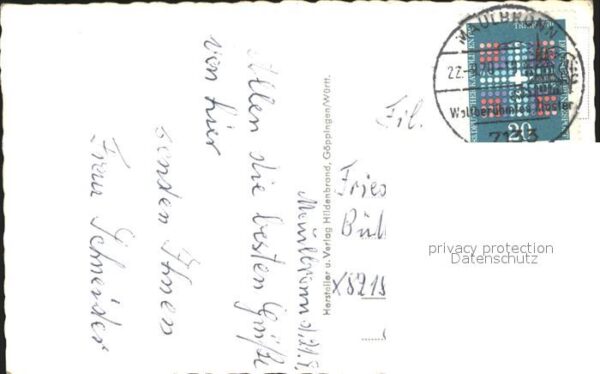 Maulbronn d. 21.9.
Allen die besten Grüße
von hier
senden Ihnen
Frau Schneider
Hersteller u. Verlag Hildenbrand, Göppingen/Württ.
MAULBRONN
Weltberühmtes Kloster
7133
20
Fil.
Fried
X8215
privacy protection
Datenschutz